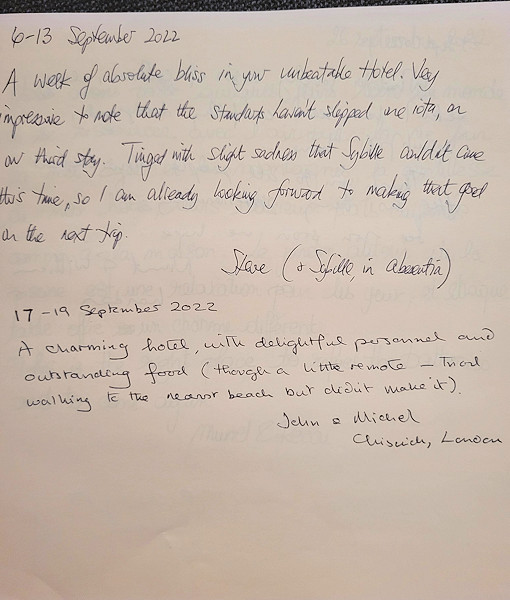 6-13 September 2022
A week of absolute bliss in your unbeatable Hotel. Very
impressive to note that the standards haven't slipped one iota, on
our third stay. Tinged with slight sadness that Sybille couldn't come
this time, so I am already looking forward to making that good
on the next trip.
Steve (+ Sybille in absentia)
17-19 September 2022
A charming hotel, with delightful personnel and
outstanding food (though a little remote - tried
walking to the nearest beach but didn't make it).
John & Michel
Chiswick, London